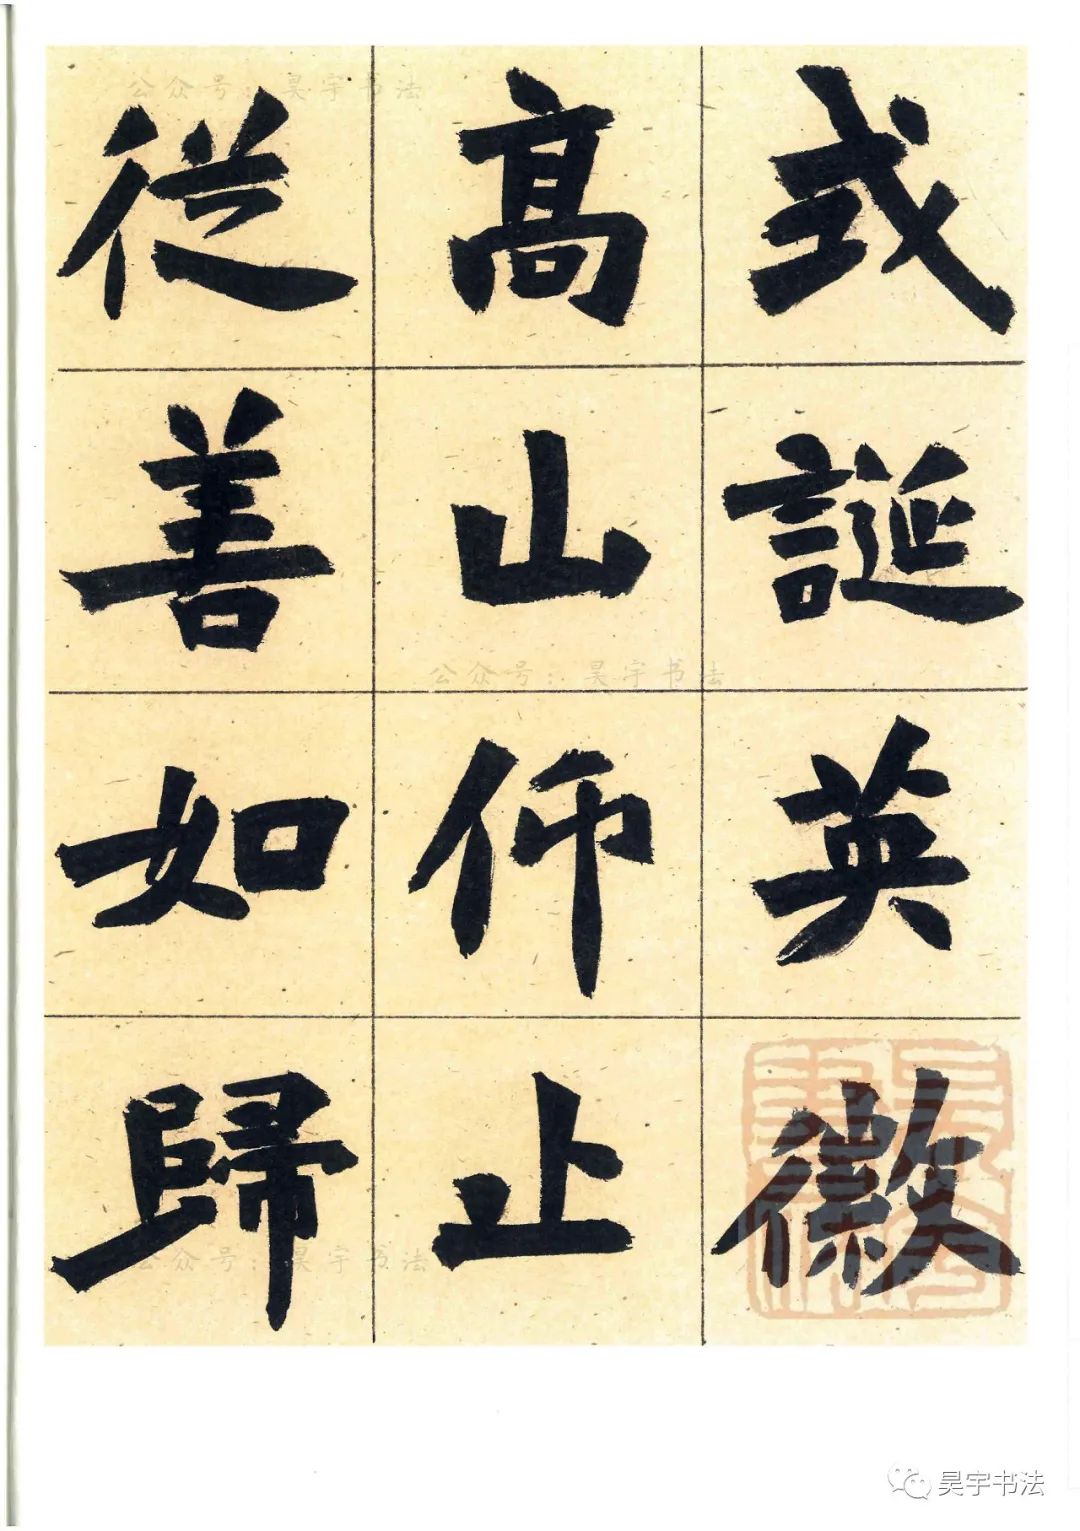 式誕英徽
高山仰止
從善如歸
公众号：昊宇书法
公众号：昊宇书法
公众号：昊宇书法
昊宇书法